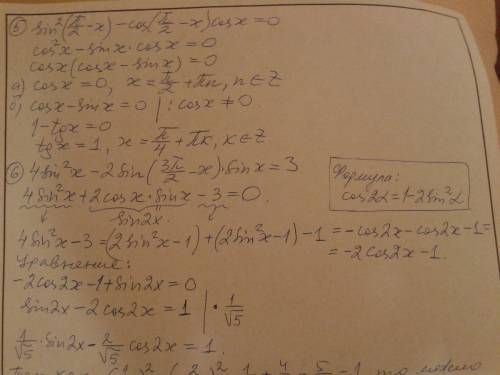 ⑤ sin²(π/2 - x) - cos(π/2 - x)cosx = 0
cos²x - sinx·cosx = 0
cosx(cosx - sinx) = 0
а) cosx = 0, x = π/2 + πn, n ∈ Z
б) cosx - sinx = 0 | : cosx ≠ 0
1 - tgx = 0
tgx = 1, x = π/4 + πk, k ∈ Z
⑥ 4sin²x - 2sin(3π/2 - x)·sinx = 3
4sin²x + 2cosx·sinx - 3 = 0.
sin2x.
Формула:
cos2α = 1 - 2sin²α
4sin²x - 3 = (2sin²x - 1) + (2sin²x - 1) - 1 = -cos2x - cos2x - 1 =
= -2cos2x - 1.
Уравнение:
-2cos2x - 1 + sin2x = 0
sin2x - 2cos2x = 1 | · 1/√5
1/√5 · sin2x - 2/√5 cos2x = 1.